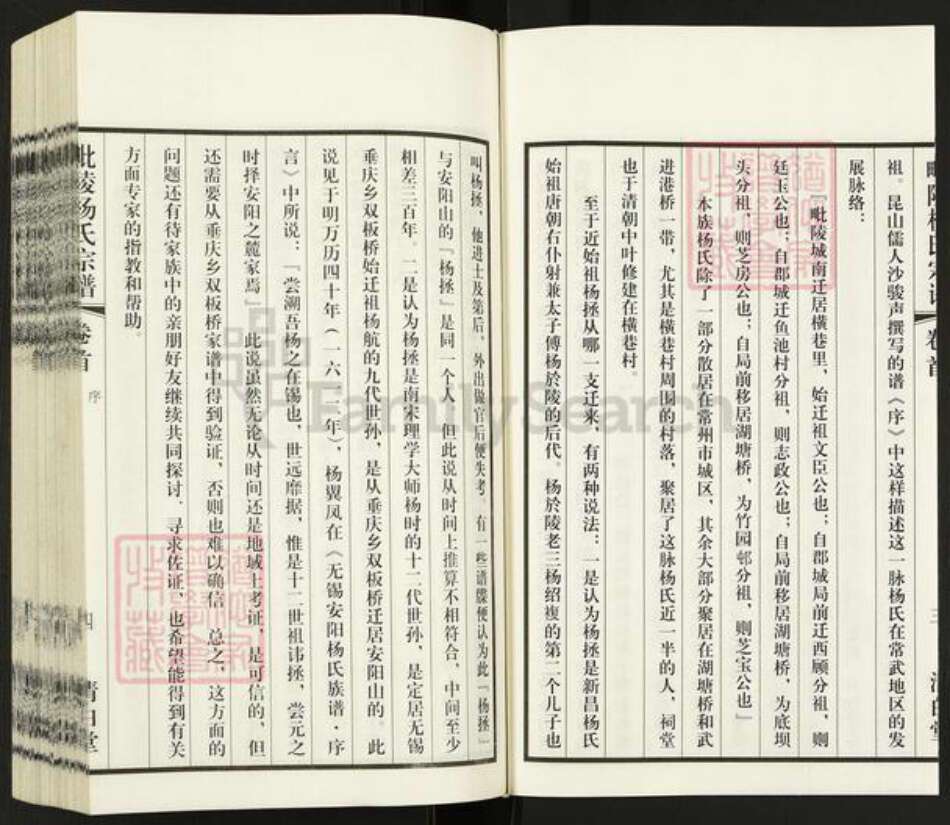 毗陵杨氏宗谱 卷首
三
清白堂
祖。昆山儒人沙骏声撰写的谱《序》中这样描述这一脉杨氏在常武地区的发
展脉络：
『毗陵城南迁居横巷里，始迁祖文臣公也；自郡城局前迁西顾分祖，则
廷玉公也；自郡城迁鱼池村分祖，则志政公也；自局前移居湖塘桥，为底坝
头分祖，则芝房公也；自局前移居湖塘桥，为竹园邨分祖，则芝宝公也』
本族杨氏除了一部分散居在常州市城区，其余大部分聚居在湖塘桥和武
进港桥一带，尤其是横巷村周围的村落，聚居了这脉杨氏近一半的人，祠堂
也于清朝中叶修建在横巷村。
至于近始祖杨拯从哪一支迁来，有两种说法：一是认为杨拯是新昌杨氏
始祖唐朝右仆射兼太子傅杨於陵的后代。杨於陵老三杨绍複的第二个儿子也
叫杨拯，他进士及第后，外出做官后便失考。有一些谱牒便认为此『杨拯』
与安阳山的『杨拯』是同一个人，但此说从时间上推算不相符合，中间至少
相差三百年。二是认为杨拯是南宋理学大师杨时的十二代世孙，是定居无锡
垂庆乡双板桥始迁祖杨航的九代世孙，是从垂庆乡双板桥迁居安阳山的。此
说见于明万历四十年（一六一二年），杨翼凤在《无锡安阳杨氏族谱·序
言》中所说：『尝溯吾杨之在锡也，世远靡据，惟是十二世祖讳拯，尝元之
时择安阳之麓家焉』此说虽然无论从时间还是地域上考证，是可信的，但
还需要从垂庆乡双板桥家谱中得到验证，否则也难以确信。总之，这方面的
问题还有待家族中的亲朋好友继续共同探讨，寻求佐证，也希望能得到有关
方面专家的指教和帮助。
毗陵杨氏宗谱 卷首
序
四
清白堂
FamilySearch